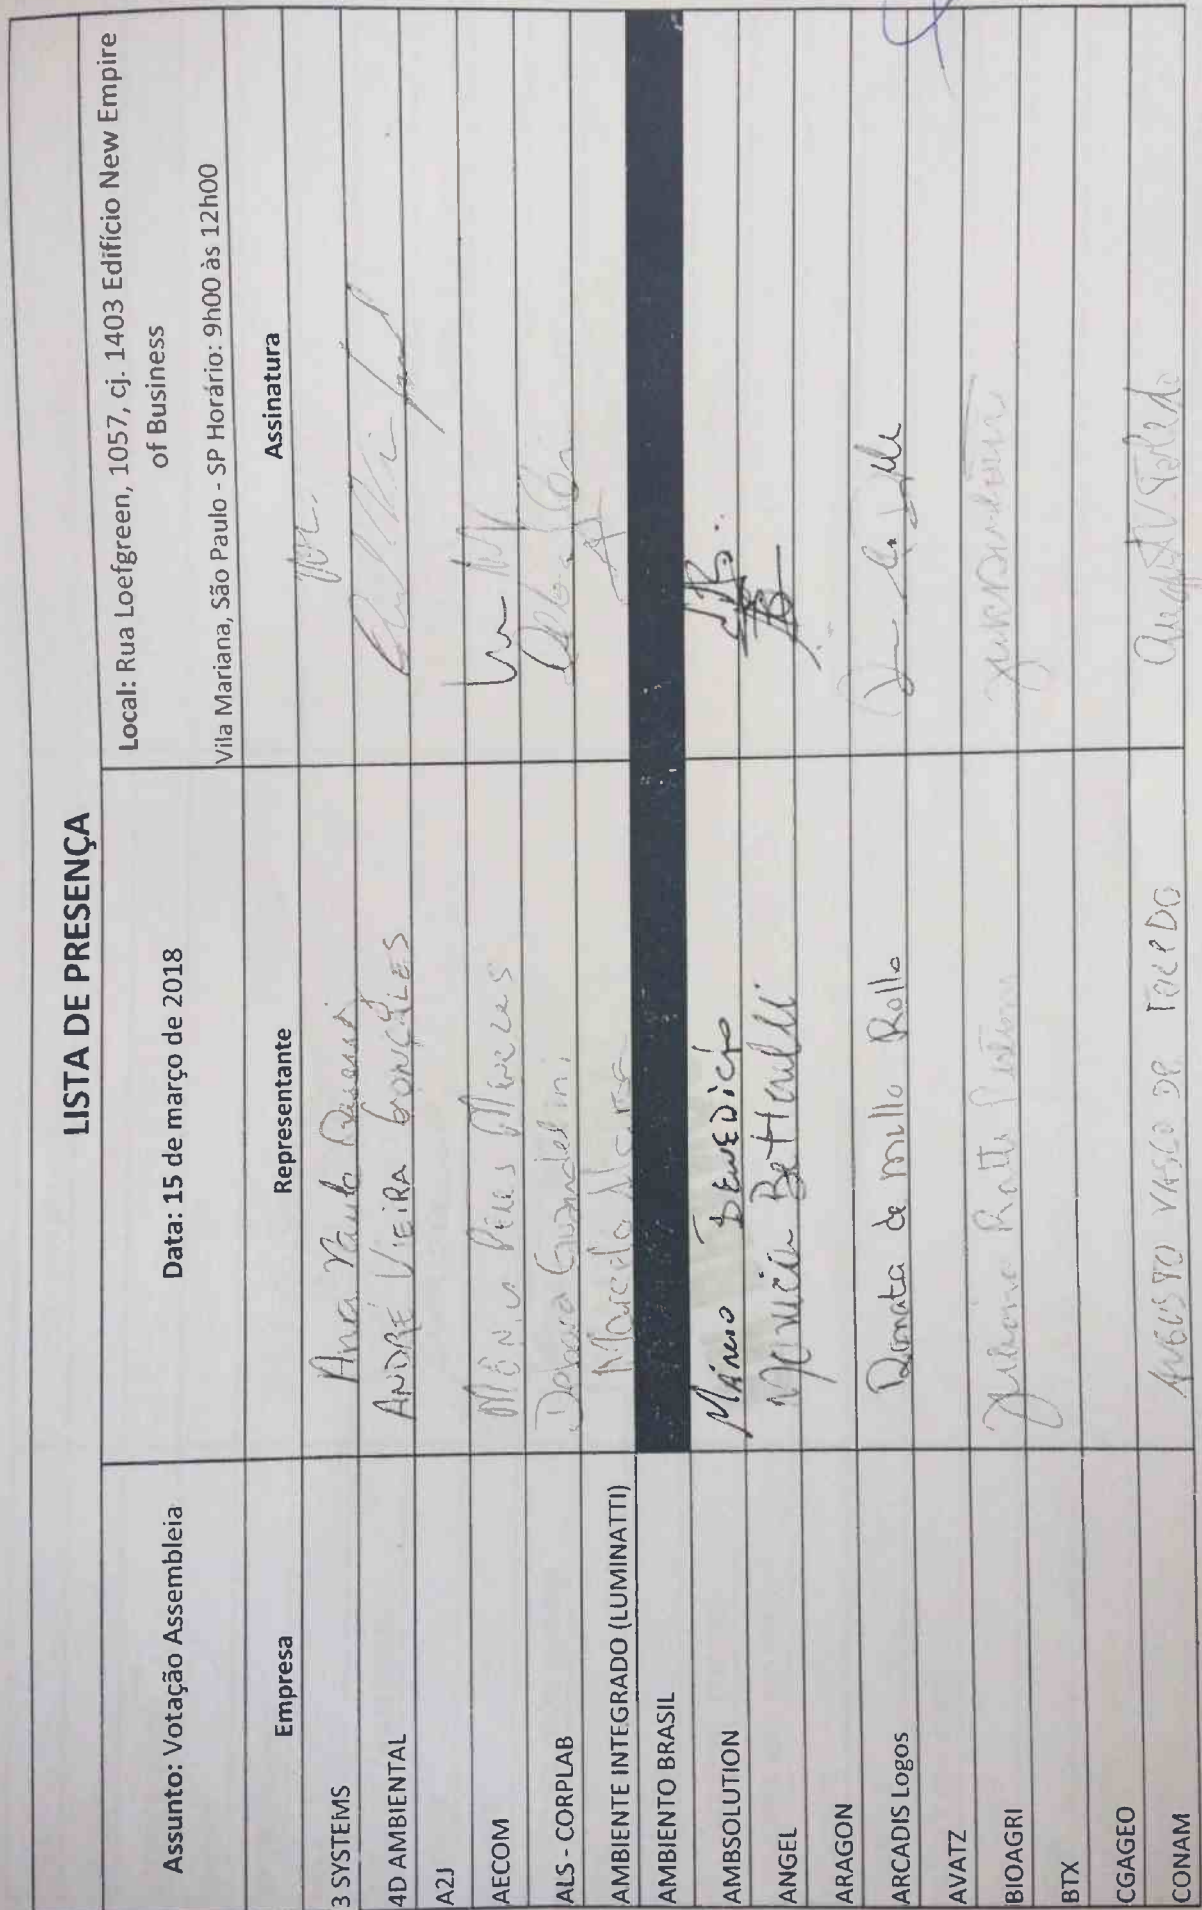 LISTA DE PRESENÇA
Assunto: Votação Assembleia
Data: 15 de março de 2018
Local: Rua Loefgreen, 1057, cj. 1403 Edifício New Empire
of Business
Vila Mariana, São Paulo - SP Horário: 9h00 às 12h00
Empresa Representante Assinatura
3 SYSTEMS Ana Paula
4D AMBIENTAL ANDRÉ VIEIRA GONÇALES
A2J
AECOM
ALS - CORPLAB Debora
AMBIENTE INTEGRADO (LUMINATTI) Marcelo
AMBIENTO BRASIL
AMBSOLUTION Márcio BENEDICTO
ANGEL
ARAGON
ARCADIS Logos Renata de mello Rollo
AVATZ
BIOAGRI Juliana Ratti
BTX
CGAGEO
CONAM AUGUSTO VASCO DE TOLEDO